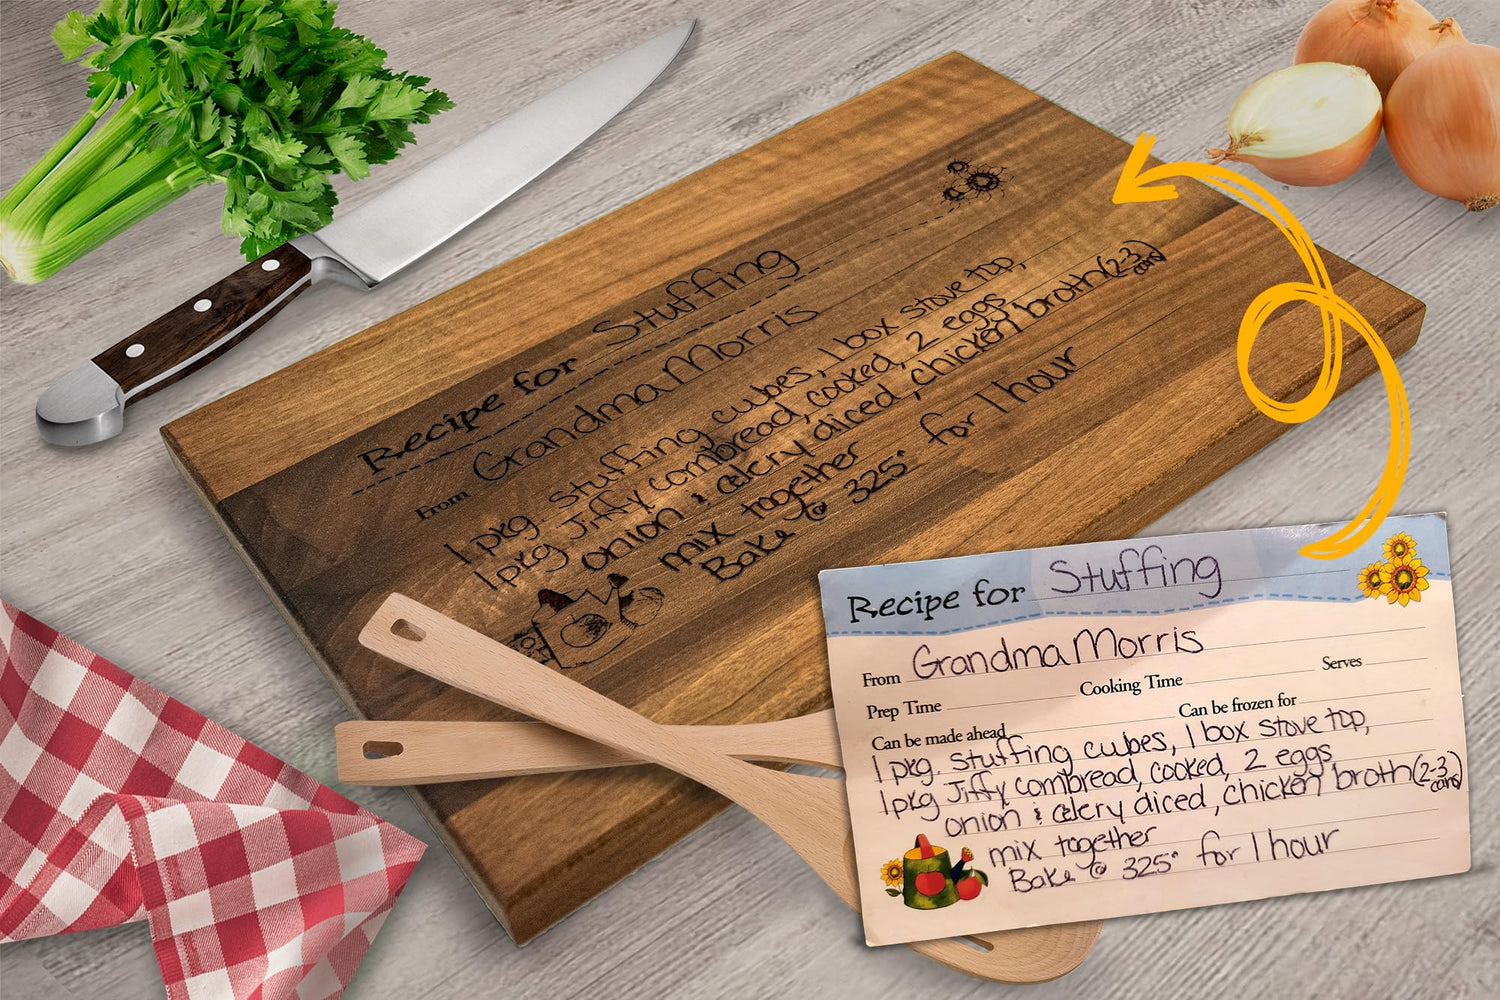 Recipe for Stuffing
From Grandma Morris
1 pkg. stuffing cubes, 1 box stove top,
1 pkg Jiffy cornbread, cooked, 2 eggs
onion & celery diced, chicken broth (2-3 cans)
mix together
Bake @ 325° for 1 hour
Recipe for Stuffing
From Grandma Morris
Prep Time Cooking Time Serves
Can be made ahead Can be frozen for
1 pkg. stuffing cubes, 1 box stove top,
1 pkg Jiffy cornbread, cooked, 2 eggs
onion & celery diced, chicken broth (2-3 cans)
mix together
Bake @ 325° for 1 hour